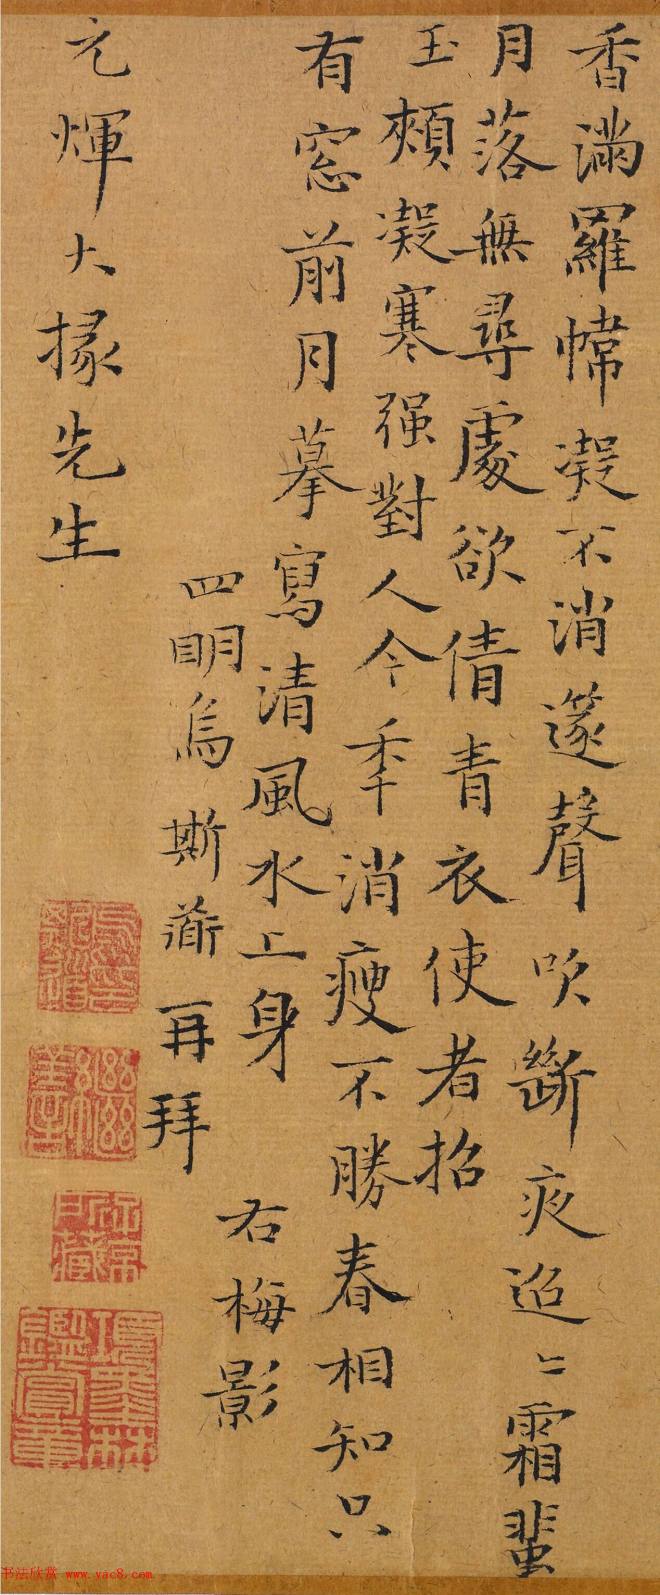 香滿羅幃凝不消邃聲吹斷夜迢〻霜蜚
月落無尋處欲倩青衣使者招
玉頰凝寒强對人今秊消瘦不勝春相知只
有窓前月摹寫清風水上身
右梅影
四明烏斯道再拜
元煇大掾先生
书法欣赏 www.yac8.com